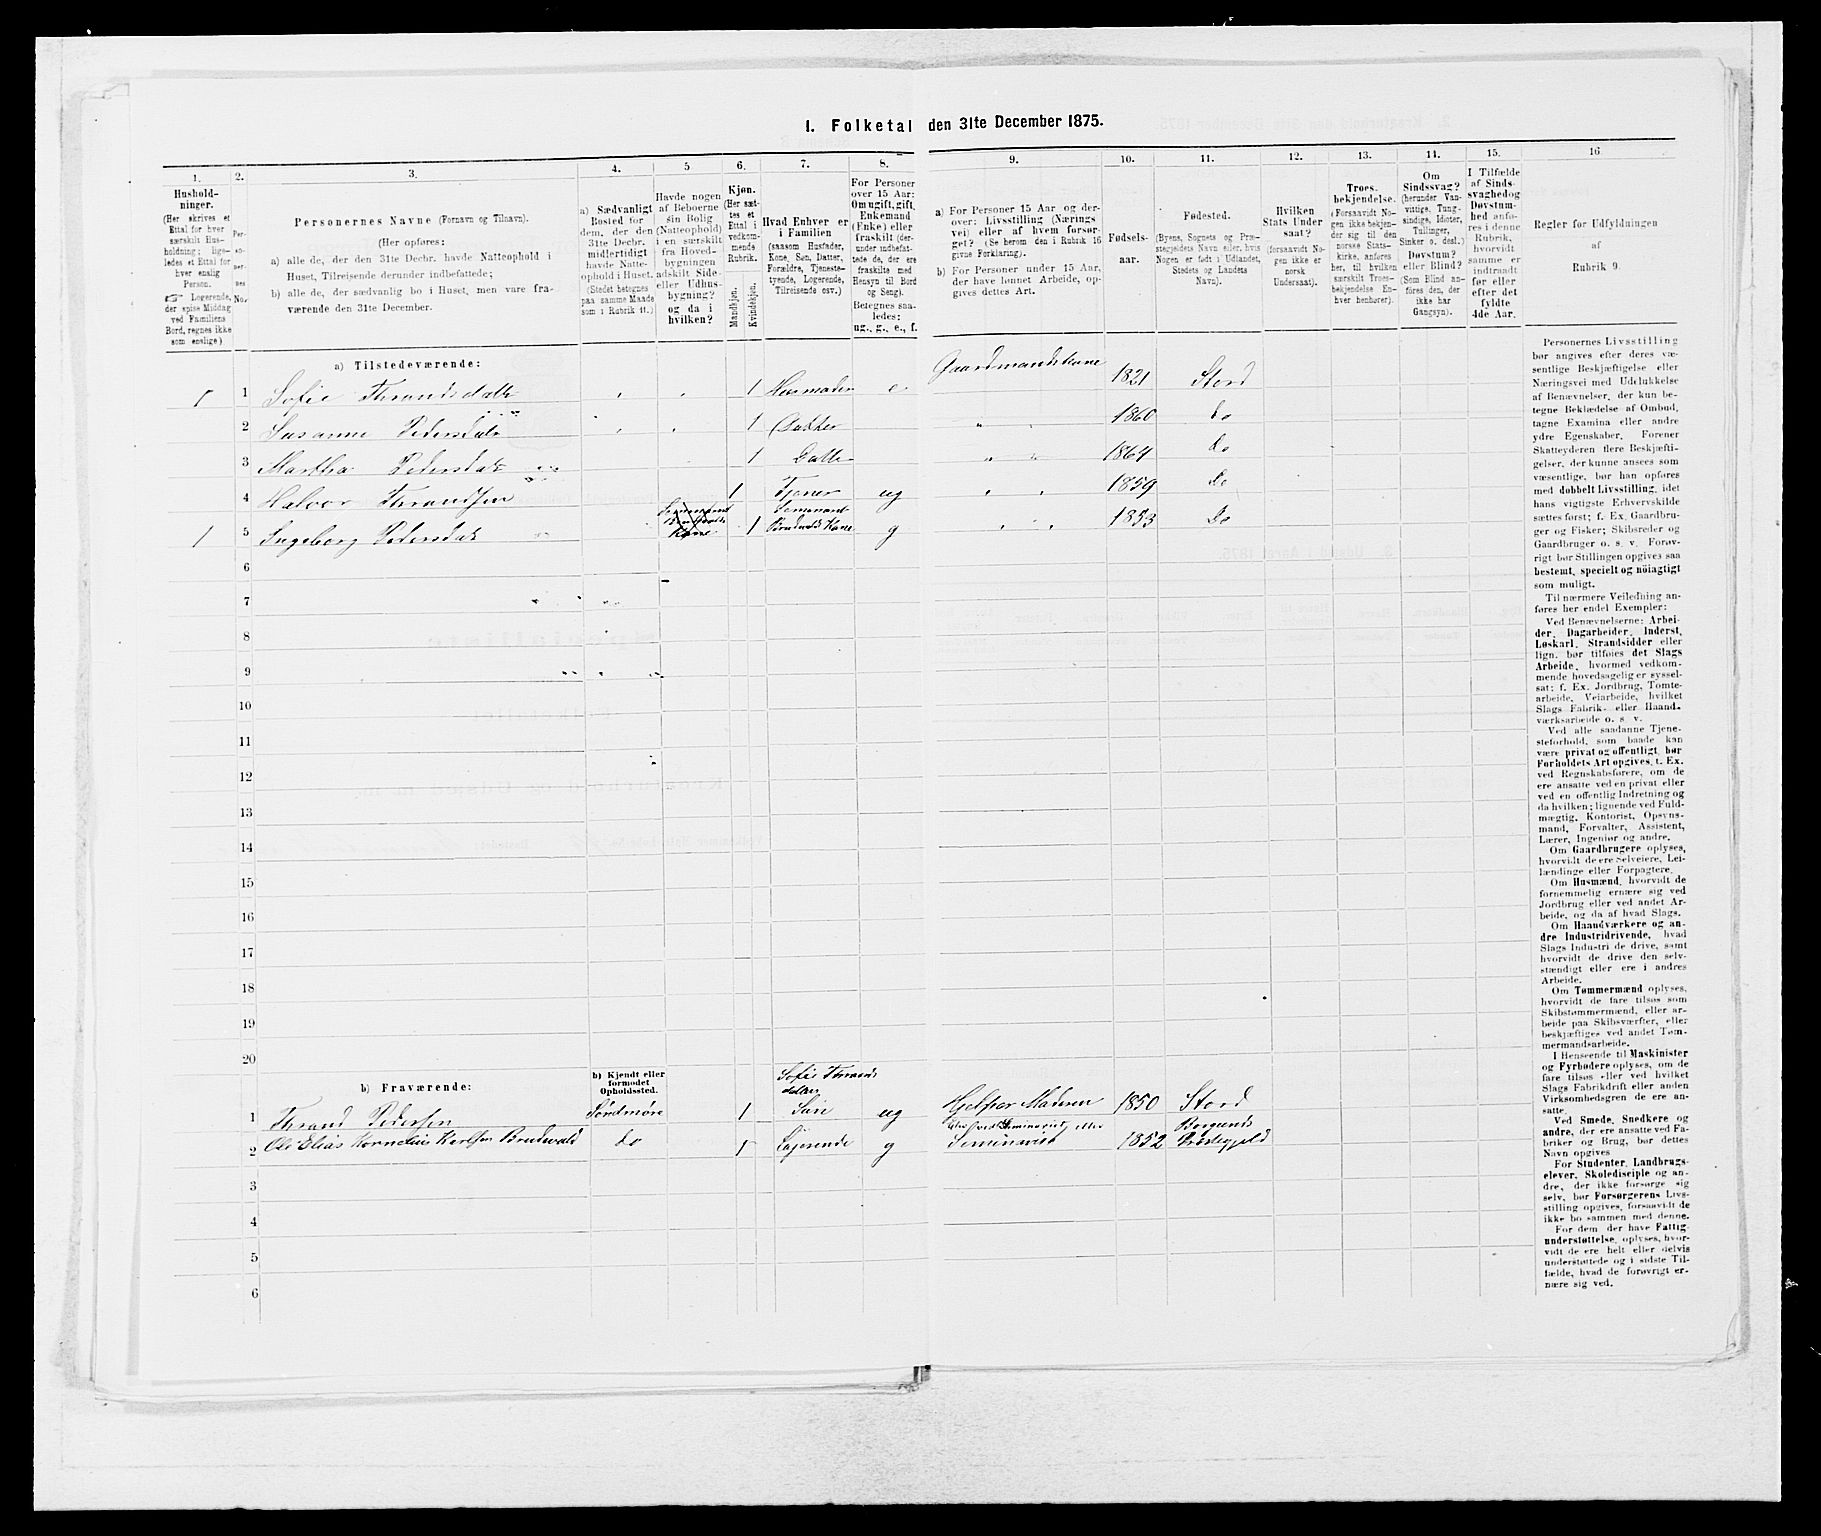 1. Folketal den 31te December 1875.
1.
Hushold-
ninger.
(Her skrives et
Ettal for hver
særskilt Hus-
holdning; lige-
ledes et Ettal for
hver enslig
Person.
☞ Logerende,
der spise Middag
ved Familiens
Bord, regnes ikke
som enslige)
2.
Per-
so-
ner-
nes
No.
3.
Personernes Navne (Fornavn og Tilnavn).
(Her opføres:
a) alle de, der den 31te Decbr. havde Natteophold i
Huset, Tilreisende derunder indbefattede;
b) alle de, der sædvanlig bo i Huset, men vare fra-
værende den 31te December.
4.
a) Sædvanligt
Bosted for
dem, der den
31te Decbr.
midlertidigt
havde Natte-
ophold i Huset.
(Stedet betegnes
paa samme Maade
som i Rubrik 11.)
5
Havde nogen
af Beboerne
sin Bolig
(Natteophold)
i en særskilt
fra Hoved-
bygningen
adskilt Side-
eller Udhus-
bygning?
og da i
hvilken?
6.
Kjøn.
(Her sæt-
tes et
Ettal i
vedkom-
mende
Rubrik.
Mandkjøn.
Kvindekjøn.
7.
Hvad Enhver er
i Familien
(saasom Husfader,
Kone, Søn, Datter,
Forældre, Tjeneste-
tyende, Logerende,
Tilreisende osv.)
8.
For Personer
over 15 Aar:
Om ugift, gift,
Enkemand
(Enke) eller
fraskilt (der-
under indbefat-
tede de, der ere
fraskilte med
Hensyn til Bord
og Seng).
Betegnes saa-
ledes:
ug., g., e., f.
9.
a) For Personer 15 Aar og der-
over: Livsstilling (Nærings
vei) eller af hvem forsør-
get? (Se herom den i Rubrik 16
givne Forklaring).
b) For Personer under 15 Aar,
der have lønnet Arbeide, op-
gives dettes Art.
10.
Fødsels-
aar.
11.
Fødested.
(Byens, Sognets og Præ-
stegjeldets Navn eller, hvis
Nogen er født i Udlandet,
Stedets og Landets
Navn).
12.
Hvilken
Stats Under
saat?
(forsaavidt No-
gen ikke er
norsk
Undersaat).
13.
Troes.
bekjendelse.
(Forsaavidt No-
gen ikke bekjen-
der sig til den
norske Stats-
kirke, anføres
her, til hvilken
særskilt Troes-
bekjendelse En-
hver henhører).
14.
Om
Sindssvag?
(herunder Van-
vittige, Tung-
sindige, Idioter,
Tullinger,
Sinker o. desl.)
Døvstum?
eller Blind?
(Som Blind an-
føres den, der
ikke har
Gangsyn).
15.
I Tilfælde
af Sinds-
svaghed og
Døvstum-
hed anfø-
res i denne
Rubrik,
hvorvidt
samme er
indtraadt
før eller
efter det
fyldte
4de Aar.
16
Regler for Udfyldningen
af
Rubrik 9.
a) Tilstedeværende:
Gaardmandskone
1 1 Sofie Thrandsdatter 1 Husmoder e 1821 Stord
2 Susanne Pedersdatr 1 Datter 1860 do
3 Martha Pedersdatr 1 Datter 1864 do
4 Halvor Thrandsen 1 Tjener ug 1859 do
Seminarist
Brudvolds
Kone
1 5 Ingeborg Pedersdatr 1 Seminarist
Brudvolds Kone g 1853 do
6
7
8
9
10
11
12
13
14
15
16
17
18
19
20
b) Fraværende:
b) Kjendt eller
formodet
Opholdssted.
Sofie Thrands
datter
1 Thrand Pedersen Søndmøre 1 Søn ug Hjelper Moderen 1850 Stord
2 Ole Elias Kornelius Karlsen Brudvold do 1 Logerende g Seminarist 1852 Borgunds
Præstegjeld
3
4
5
6
Personernes Livsstilling
bør angives efter deres væ-
sentlige Beskjæftigelse eller
Næringsvei med Udelukkelse
af Benævnelser, der kun be-
tegne Beklædelse af Ombud,
tagne Examina eller andre
ydre Egenskaber. Forener
Skatteyderen flere Beskjæfti-
gelser, der kunne ansees som
væsentlige, bør han opføres
med dobbelt Livsstilling, idet
hans vigtigste Erhvervskilde
sættes først; f. Ex. Gaardbru-
ger og Fisker; Skibsreder og
Gaardbruger o. s. v. Forøv-
rigt bør Stillingen opgives saa
bestemt, specielt og nöiagtigt
som muligt.
Til nærmere Veiledning an-
føres her endel Exempler:
Ved Benævnelserne: Arbei-
der, Dagarbeider, Inderst,
Løskarl, Strandsidder eller
lign. bør tilføies det Slags
Arbeide, hvormed vedkom-
mende hovedsagelig er syssel-
sat; f. Ex. Jordbrug, Tomte-
arbeide, Veiarbeide, hvilket
Slags Fabrik- eller Haand-
værksarbeide o. s. v.
Ved alle saadanne Tjene-
steforhold, som baade kan
være privat og offentligt, bør
Forholdets Art opgives, t. Ex.
ved Regnskabsførere, om de
ere ansatte ved en privat eller
ved en offentlig Indretning og
da hvilken; lignende ved Fuld-
mægtig, Kontorist, Opsyns-
mand, Forvalter, Assistent,
Lærer, Ingeniør og andre.
Om Gaardbrugere oplyses,
hvorvidt de ere Selveiere, Lei-
lændinge eller Forpagtere.
Om Husmænd, hvorvidt de
fornemmelig ernære sig ved
Jordbrug eller ved andet Ar-
beide, og da af hvad Slags.
Om Haandværkere og an-
dre Industridrivende, hvad
Slags Industri de drive, samt
hvorvidt de drive den selv-
stændigt eller ere i andres
Arbeide.
Om Tømmermænd oplyses,
hvorvidt de fare tilsøs som
Skibstømmermænd, eller ar-
beide paa Skibsværfter, eller
beskjæftiges ved andet Tøm-
mermandsarbeide.
I Henseende til Maskinister
og Fyrbødere oplyses, om de
fare tilsøs eller ved hvilket
Slags Fabrikdrift eller anden
Virksomhedsgren de ere an-
satte.
Ved Smede, Snedkere og
andre, der ere ansatte ved Fa-
briker og Brug, bør dettes
Navn opgives
For Studenter, Landbrugs-
elever, Skoledisciple og an-
dre, der ikke forsørge sig
selv, bør Forsørgerens Livs-
stilling opgives, forsaavidt de
ikke bo sammen med denne.
For dem der have Fattig-
understøttelse, oplyses, hvor-
vidt de ere helt eller delvis
understøttede og i sidste Til-
fælde, hvad de forøvrigt er-
nære sig ved.